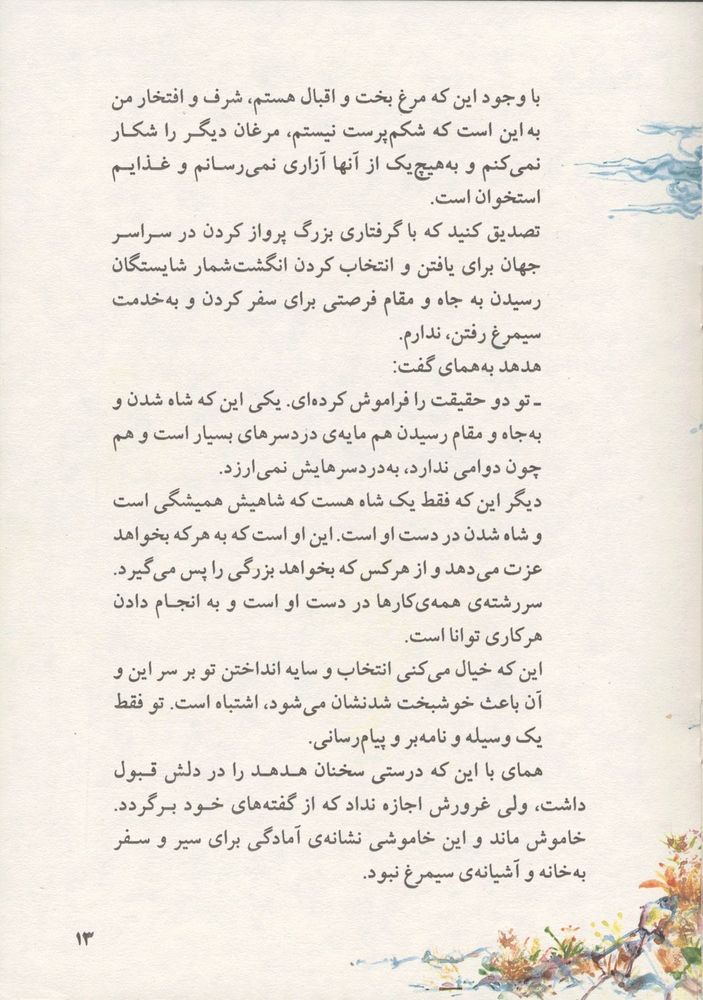 با وجود این که مرغ بخت و اقبال هستم، شرف و افتخار من
به این است که شکم‌پرست نیستم، مرغان دیگر را شکار
نمی‌کنم و به‌هیچ‌یک از آنها آزاری نمی‌رسانم و غذایم
استخوان است.
تصدیق کنید که با گرفتاری بزرگ پرواز کردن در سراسر
جهان برای یافتن و انتخاب کردن انگشت‌شمار شایستگان
رسیدن به جاه و مقام فرصتی برای سفر کردن و به‌خدمت
سیمرغ رفتن، ندارم.
هدهد به‌همای گفت:
ـ تو دو حقیقت را فراموش کرده‌ای. یکی این که شاه شدن و
به‌جاه و مقام رسیدن هم مایه‌ی دردسرهای بسیار است و هم
چون دوامی ندارد، به‌دردسرهایش نمی‌ارزد.
دیگر این که فقط یک شاه هست که شاهیش همیشگی است
و شاه شدن در دست او است. این او است که به هرکه بخواهد
عزت می‌دهد و از هرکس که بخواهد بزرگی را پس می‌گیرد.
سررشته‌ی همه‌ی‌کارها در دست او است و به انجام دادن
هرکاری توانا است.
این که خیال می‌کنی انتخاب و سایه انداختن تو بر سر این و
آن باعث خوشبخت شدنشان می‌شود، اشتباه است. تو فقط
یک وسیله و نامه‌بر و پیام‌رسانی.
همای با این که درستی سخنان هدهد را در دلش قبول
داشت، ولی غرورش اجازه نداد که از گفته‌های خود برگردد.
خاموش ماند و این خاموشی نشانه‌ی آمادگی برای سیر و سفر
به‌خانه و آشیانه‌ی سیمرغ نبود.
۱۳